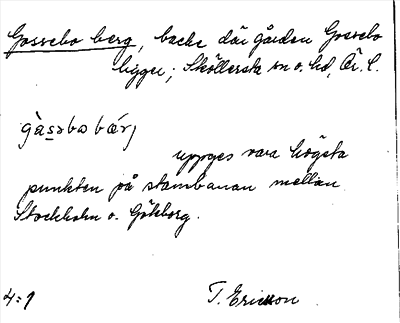 Gossebo berg, backe där gården Gossebo
ligger; Sköllersta sn o. hd, Ör. l.
gàsəbobærj
uppges vara högsta
punkten på stambanan mellan
Stockholm o. Göteborg.
4:1
T. Ericsson